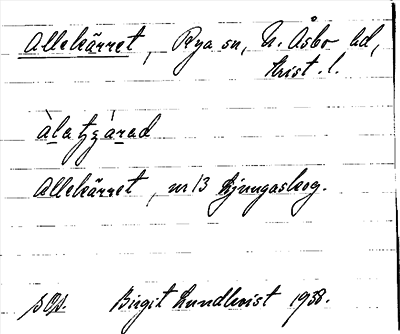 Allekärret, Rya sn, N. Åsbo hd,
Krist. l.
àlatzárad
Allekärret, nr 13 Ljungaskog.
Birgit Lundkvist 1938.